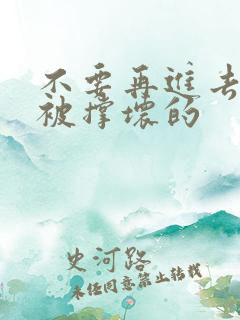 不要再进去
被撑坏的
史河路
未经同意禁止转载